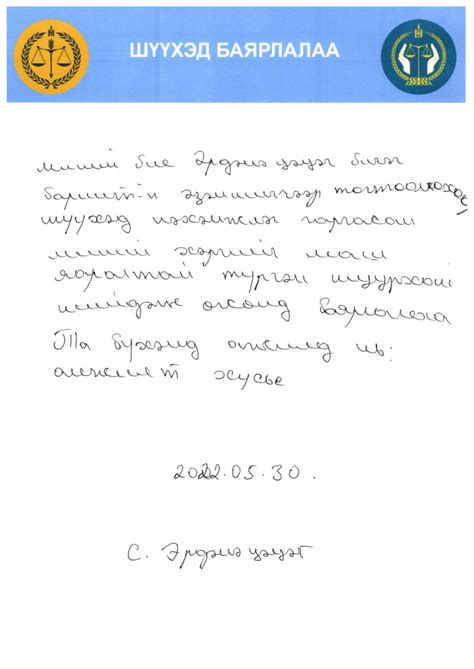 ШҮҮХЭД БАЯРЛАЛАА
миний бие Эрдэнэцэцэг бичиг
баримт-н эзэмшигчээр тогтоолгохоор
шүүхэд нэхэмжлэл гаргасан
миний хэргийг маш
яаралтай түргэн шуурхай
шийдэж өгсөнд баярлалаа
Та бүхэнд ажилд нь:
амжилт хүсье
2022.05.30.
С. Эрдэнэцэцэг